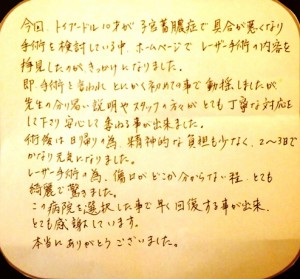 今回、トイプードル10才が子宮蓄膿症で具合が悪くなり
手術を検討している中、ホームページでレーザー手術の内容を
拝見したのがきっかけになりました。
即、手術と言われとにかく初めての事で動揺しましたが
先生の分り易い説明やスタッフの方々がとても丁寧な対応を
して下さり安心して委ねる事が出来ました。
術後は日帰りの為、精神的な負担も少なく、2〜3日で
かなり元気になりました。
レーザー手術の為、傷口がどこか分からない程、とても
綺麗で驚きました。
この病院を選択した事で早く回復する事が出来、
とても感謝しています。
本当にありがとうございました。